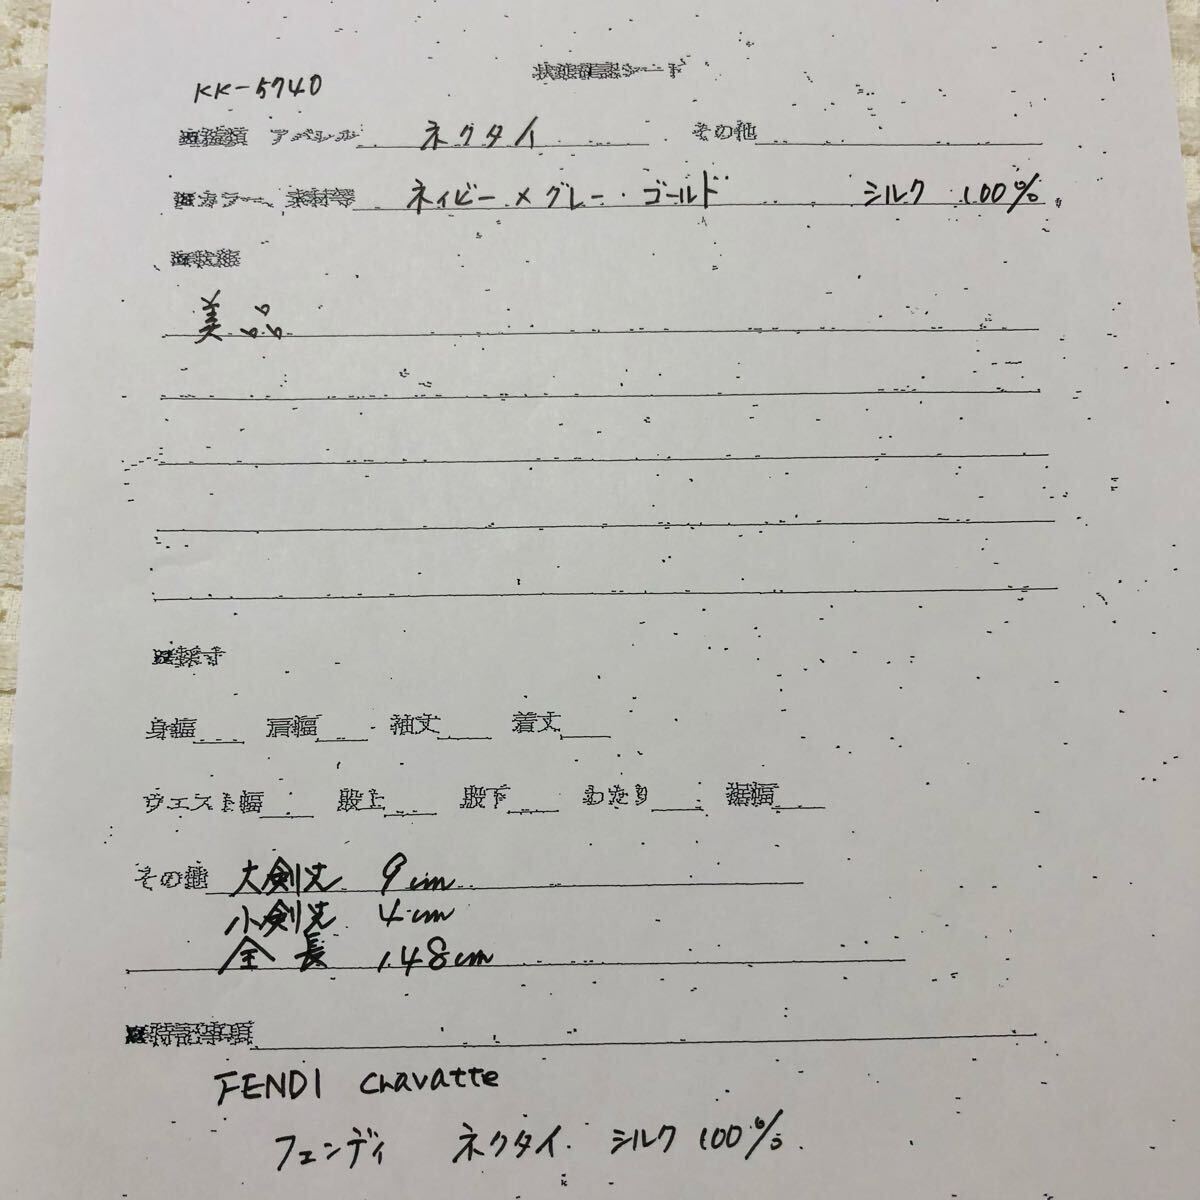 状態確認シート
KK-5740
■種類 アパレル ネクタイ その他
■カラー、素材等 ネイビー×グレー・ゴールド シルク 100%
■状態
美品
■採寸
身幅 肩幅 袖丈 着丈
ウエスト幅 股上 股下 わたり 裾幅
その他 大剣丈 9cm
小剣丈 4cm
全長 148cm
■特記事項
FENDI Cravatte
フェンディ ネクタイ. シルク 100%.